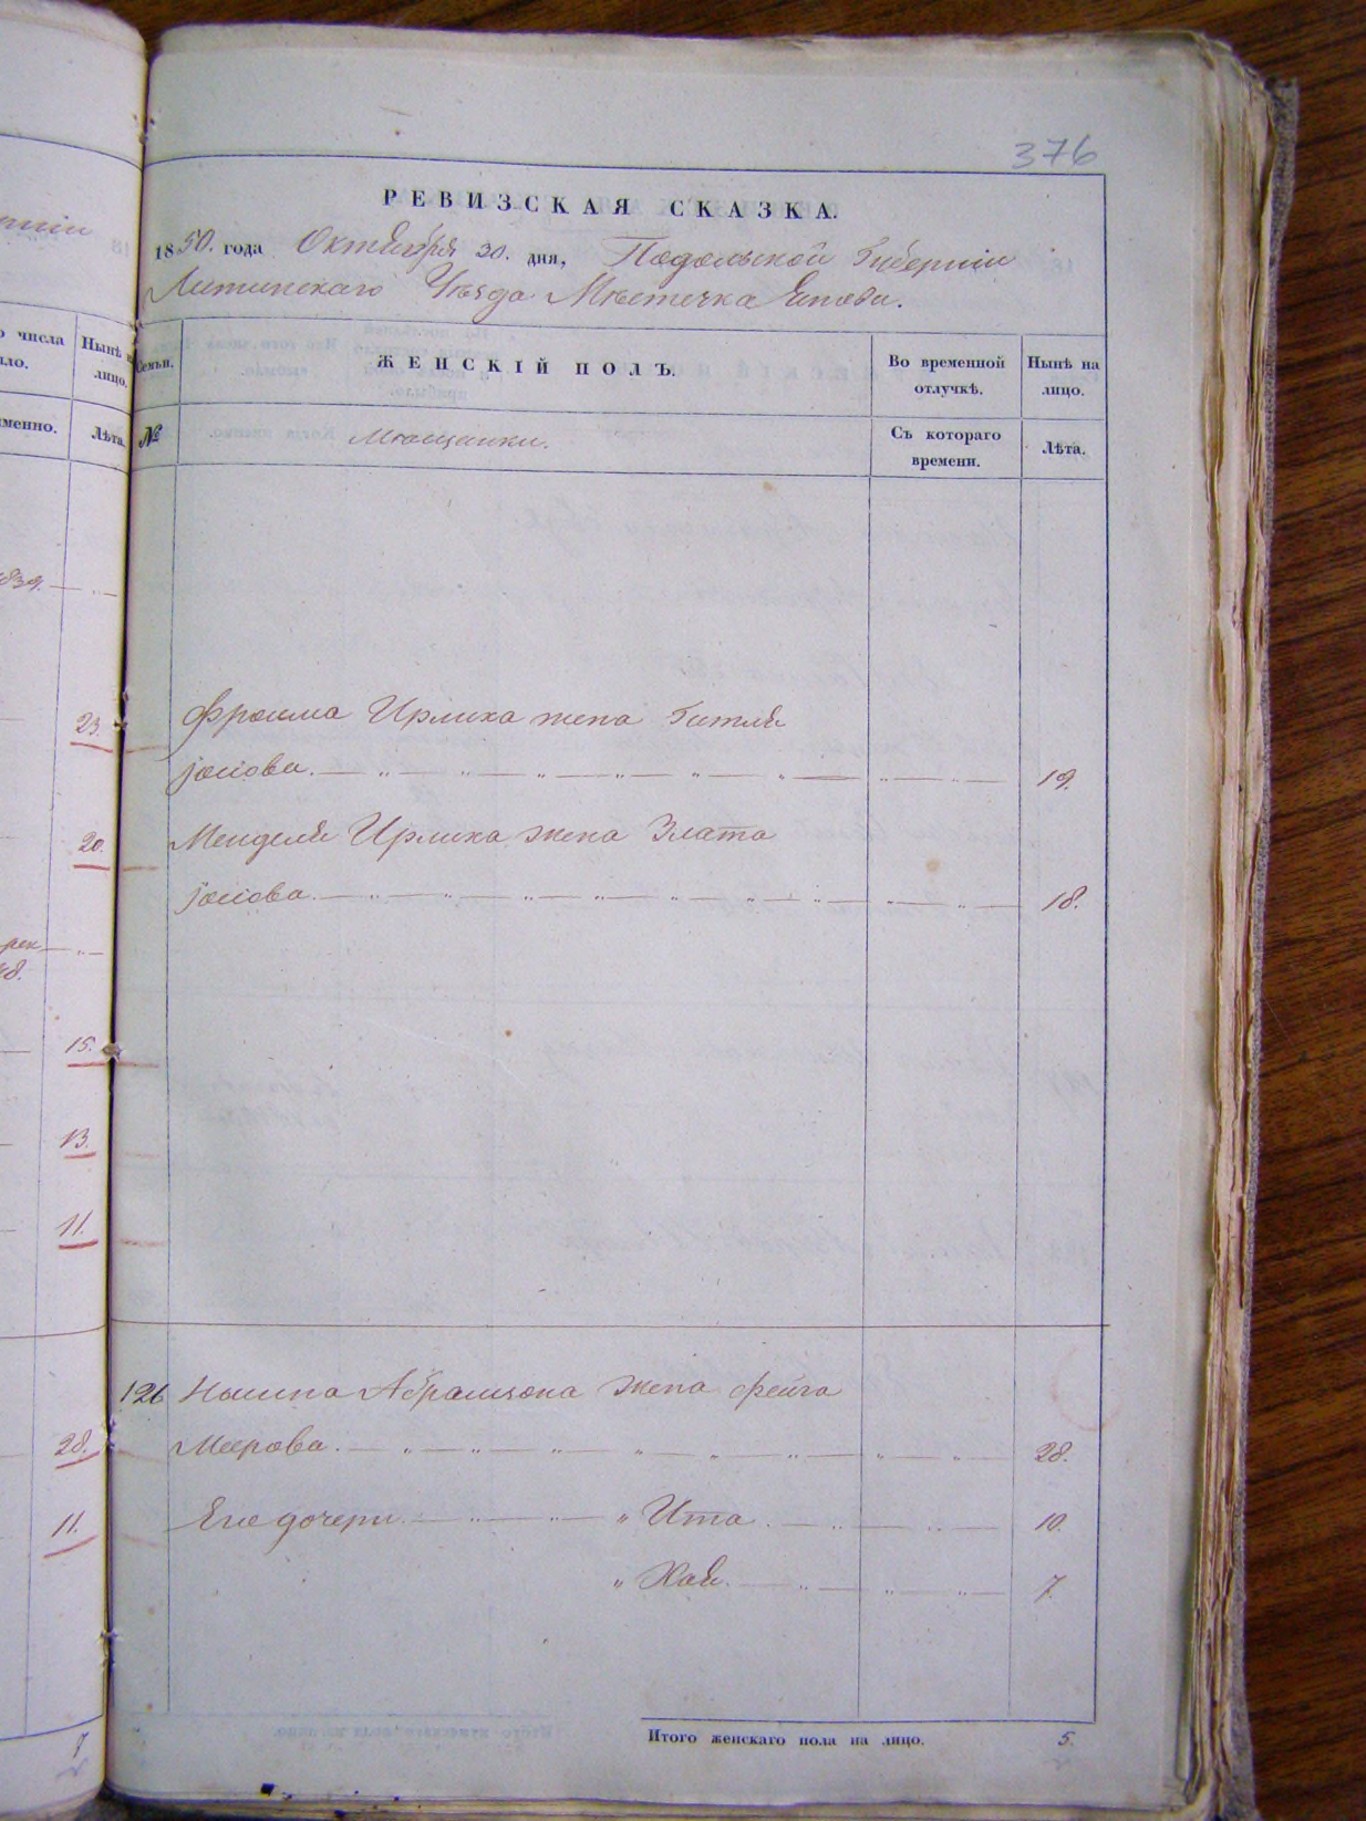 376
РЕВИЗСКАЯ СКАЗКА.
1850. года Октября 30. дня, Подольской Губерніи
Литинскаго Уѣзда Мѣстечка Янова.
Семьи.
ЖЕНСКІЙ ПОЛЪ.
Во временной отлучкѣ.
Нынѣ на лицо.
№
Мѣщанки.
Съ котораго времени.
Лѣта.
Фроима Ирлиха жена Гитля
Іосіова. 19.
Менделя Ирлиха жена Злата
Іосіова. 18.
126 Нашпа Абрамзона жена Фейга
Меерова. 28.
Его дочери „ Ита. 10.
„ Хая. 7.
Итого женскаго пола на лицо. 5.
числа
Нынѣ на
лицо.
Лѣта.
1839.
23.
20.
рек
15.
13.
11.
28.
11.
7